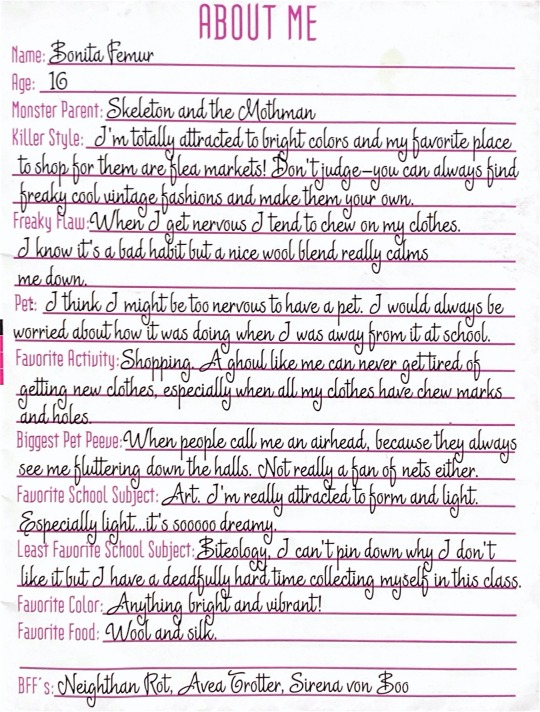 ABOUT ME
Name: Bonita Femur
Age: 16
Monster Parent: Skeleton and the Mothman
Killer Style: I'm totally attracted to bright colors and my favorite place
to shop for them are flea markets! Don't judge—you can always find
freaky cool vintage fashions and make them your own.
Freaky Flaw: When I get nervous I tend to chew on my clothes.
I know it's a bad habit but a nice wool blend really calms
me down.
Pet: I think I might be too nervous to have a pet. I would always be
worried about how it was doing when I was away from it at school.
Favorite Activity: Shopping. A ghoul like me can never get tired of
getting new clothes, especially when all my clothes have chew marks
and holes.
Biggest Pet Peeve: When people call me an airhead, because they always
see me fluttering down the halls. Not really a fan of nets either.
Favorite School Subject: Art. I'm really attracted to form and light.
Especially light...it's sooooo dreamy.
Least Favorite School Subject: Biteology. I can't pin down why I don't
like it but I have a deadfully hard time collecting myself in this class.
Favorite Color: Anything bright and vibrant!
Favorite Food: Wool and silk.
BFF's: Neighthan Rot, Avea Trotter, Sirena von Boo